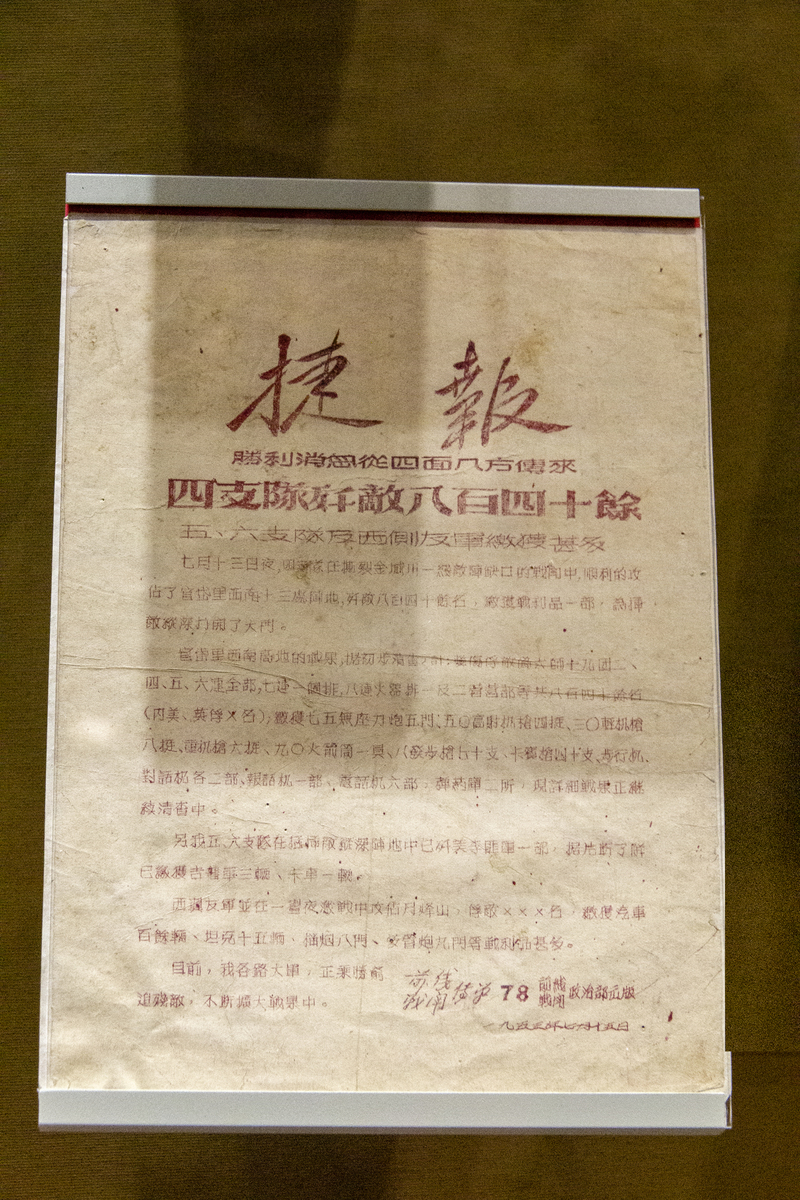 捷報
勝利消息從四面八方傳來
四支隊歼敵八百四十餘
五、六支隊及西側友軍繳獲甚多
七月十三日夜,四支隊在撕裂金城川一線敵陣缺口的戰鬥中,順利的攻
佔了官岱里西南十三處陣地,歼敵八百四十餘名,繳獲戰利品一部,為插
敵縱深打開了大門。
官岱里西南高地的戰果,据初步清查,計:斃傷俘敵六師十九团二、
四、五、六連全部,七連一個排,八連火器排一及二營營部等共八百四十餘名
(内美、英俘×名);繳獲七五無座力炮五門、五〇高射机枪四挺、三〇輕机槍
八挺、重机槍六挺、九〇火箭筒一具、八發步槍七十支、卡賓槍四十支、步行机、
對話机各二部、報話机一部、電話机六部,彈葯庫二所,現詳細戰果正繼
續清查中。
另我五、六支隊在猛插敵縱深陣地中已歼美李匪軍一部,据片断了解
已繳獲吉普車三輛、卡車一輛。
西翼友軍並在一晝夜激戰中攻佔月峰山,俘敵×××名,繳獲汽車
百餘輛、坦克十五輛、榴炮八門、 管炮九門等戰利品甚多。
目前,我各路大軍,正乘勝前
追殘敵,不断擴大戰果中。
前线战闻传单 78 前綫戰闻 政治部出版
一九五三年七月十五日